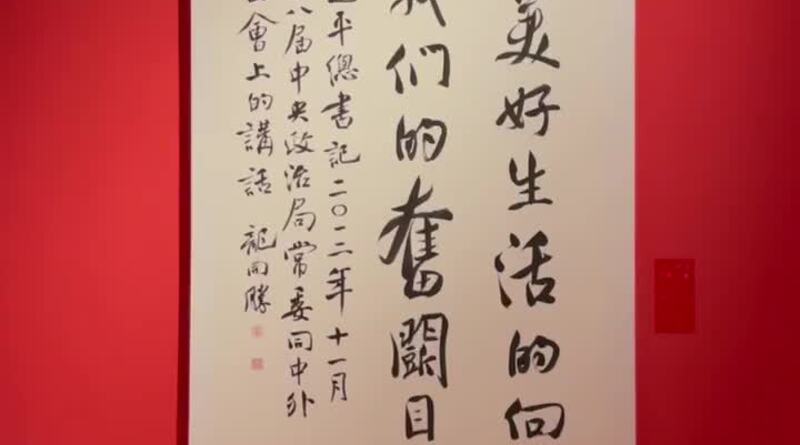 美好生活的向
我们的奮鬪目
平總書記二〇一二年十一月
八届中央政治局常委同中外
會上的講話 龍開勝